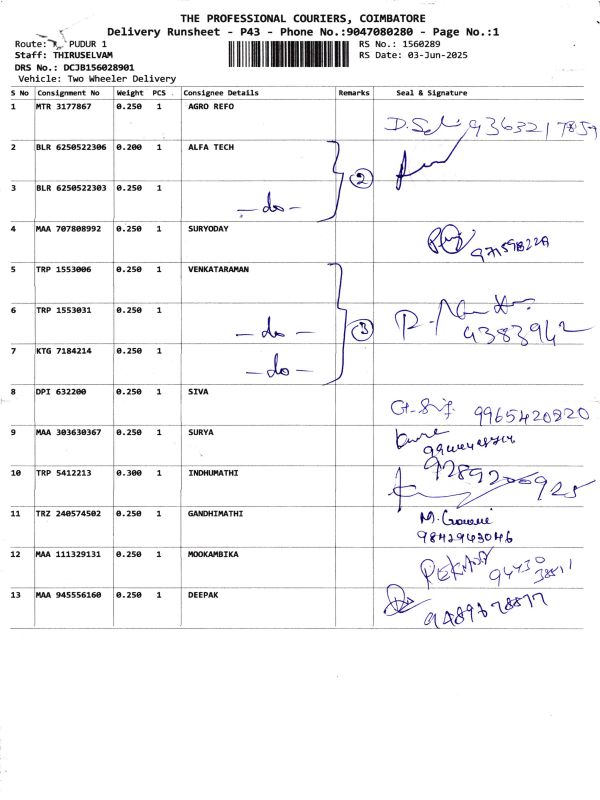 THE PROFESSIONAL COURIERS, COIMBATORE
Delivery Runsheet - P43 - Phone No.:9047080280 - Page No.:1
Route: PUDUR 1
RS No.: 1560289
Staff: THIRUSELVAM
RS Date: 03-Jun-2025
DRS No.: DCJB156028901
Vehicle: Two Wheeler Delivery
S No Consignment No Weight PCS Consignee Details Remarks Seal & Signature
1 MTR 3177867 0.250 1 AGRO REFO
9363217859
2 BLR 6250522306 0.200 1 ALFA TECH
3 BLR 6250522303 0.250 1
- do - 2
4 MAA 707808992 0.250 1 SURYODAY
5 TRP 1553006 0.250 1 VENKATARAMAN
6 TRP 1553031 0.250 1
- do - 3
7 KTG 7184214 0.250 1
- do -
8 DPI 632200 0.250 1 SIVA
9965420820
9 MAA 303630367 0.250 1 SURYA
10 TRP 5412213 0.300 1 INDHUMATHI
11 TRZ 240574502 0.250 1 GANDHIMATHI
9842943046
12 MAA 111329131 0.250 1 MOOKAMBIKA
13 MAA 945556160 0.250 1 DEEPAK